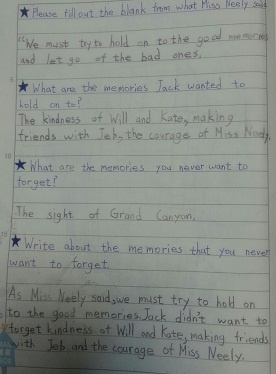 ★Please fill out the blank from what Miss Neely said.
"We must try to hold on to the good memories
and let go of the bad ones.
5
★What are the memories Jack wanted to
hold on to?
The kindness of Will and Kate, making
friends with Jeb, the courage of Miss Neely.
10
★What are the memories you never want to
forget?
The sight of Grand Canyon.
15
★Write about the memories that you never
want to forget.
As Miss Neely said, we must try to hold on
to the good memories. Jack didn't want to
forget kindness of Will and Kate, making friends
with Jeb and the courage of Miss Neely.